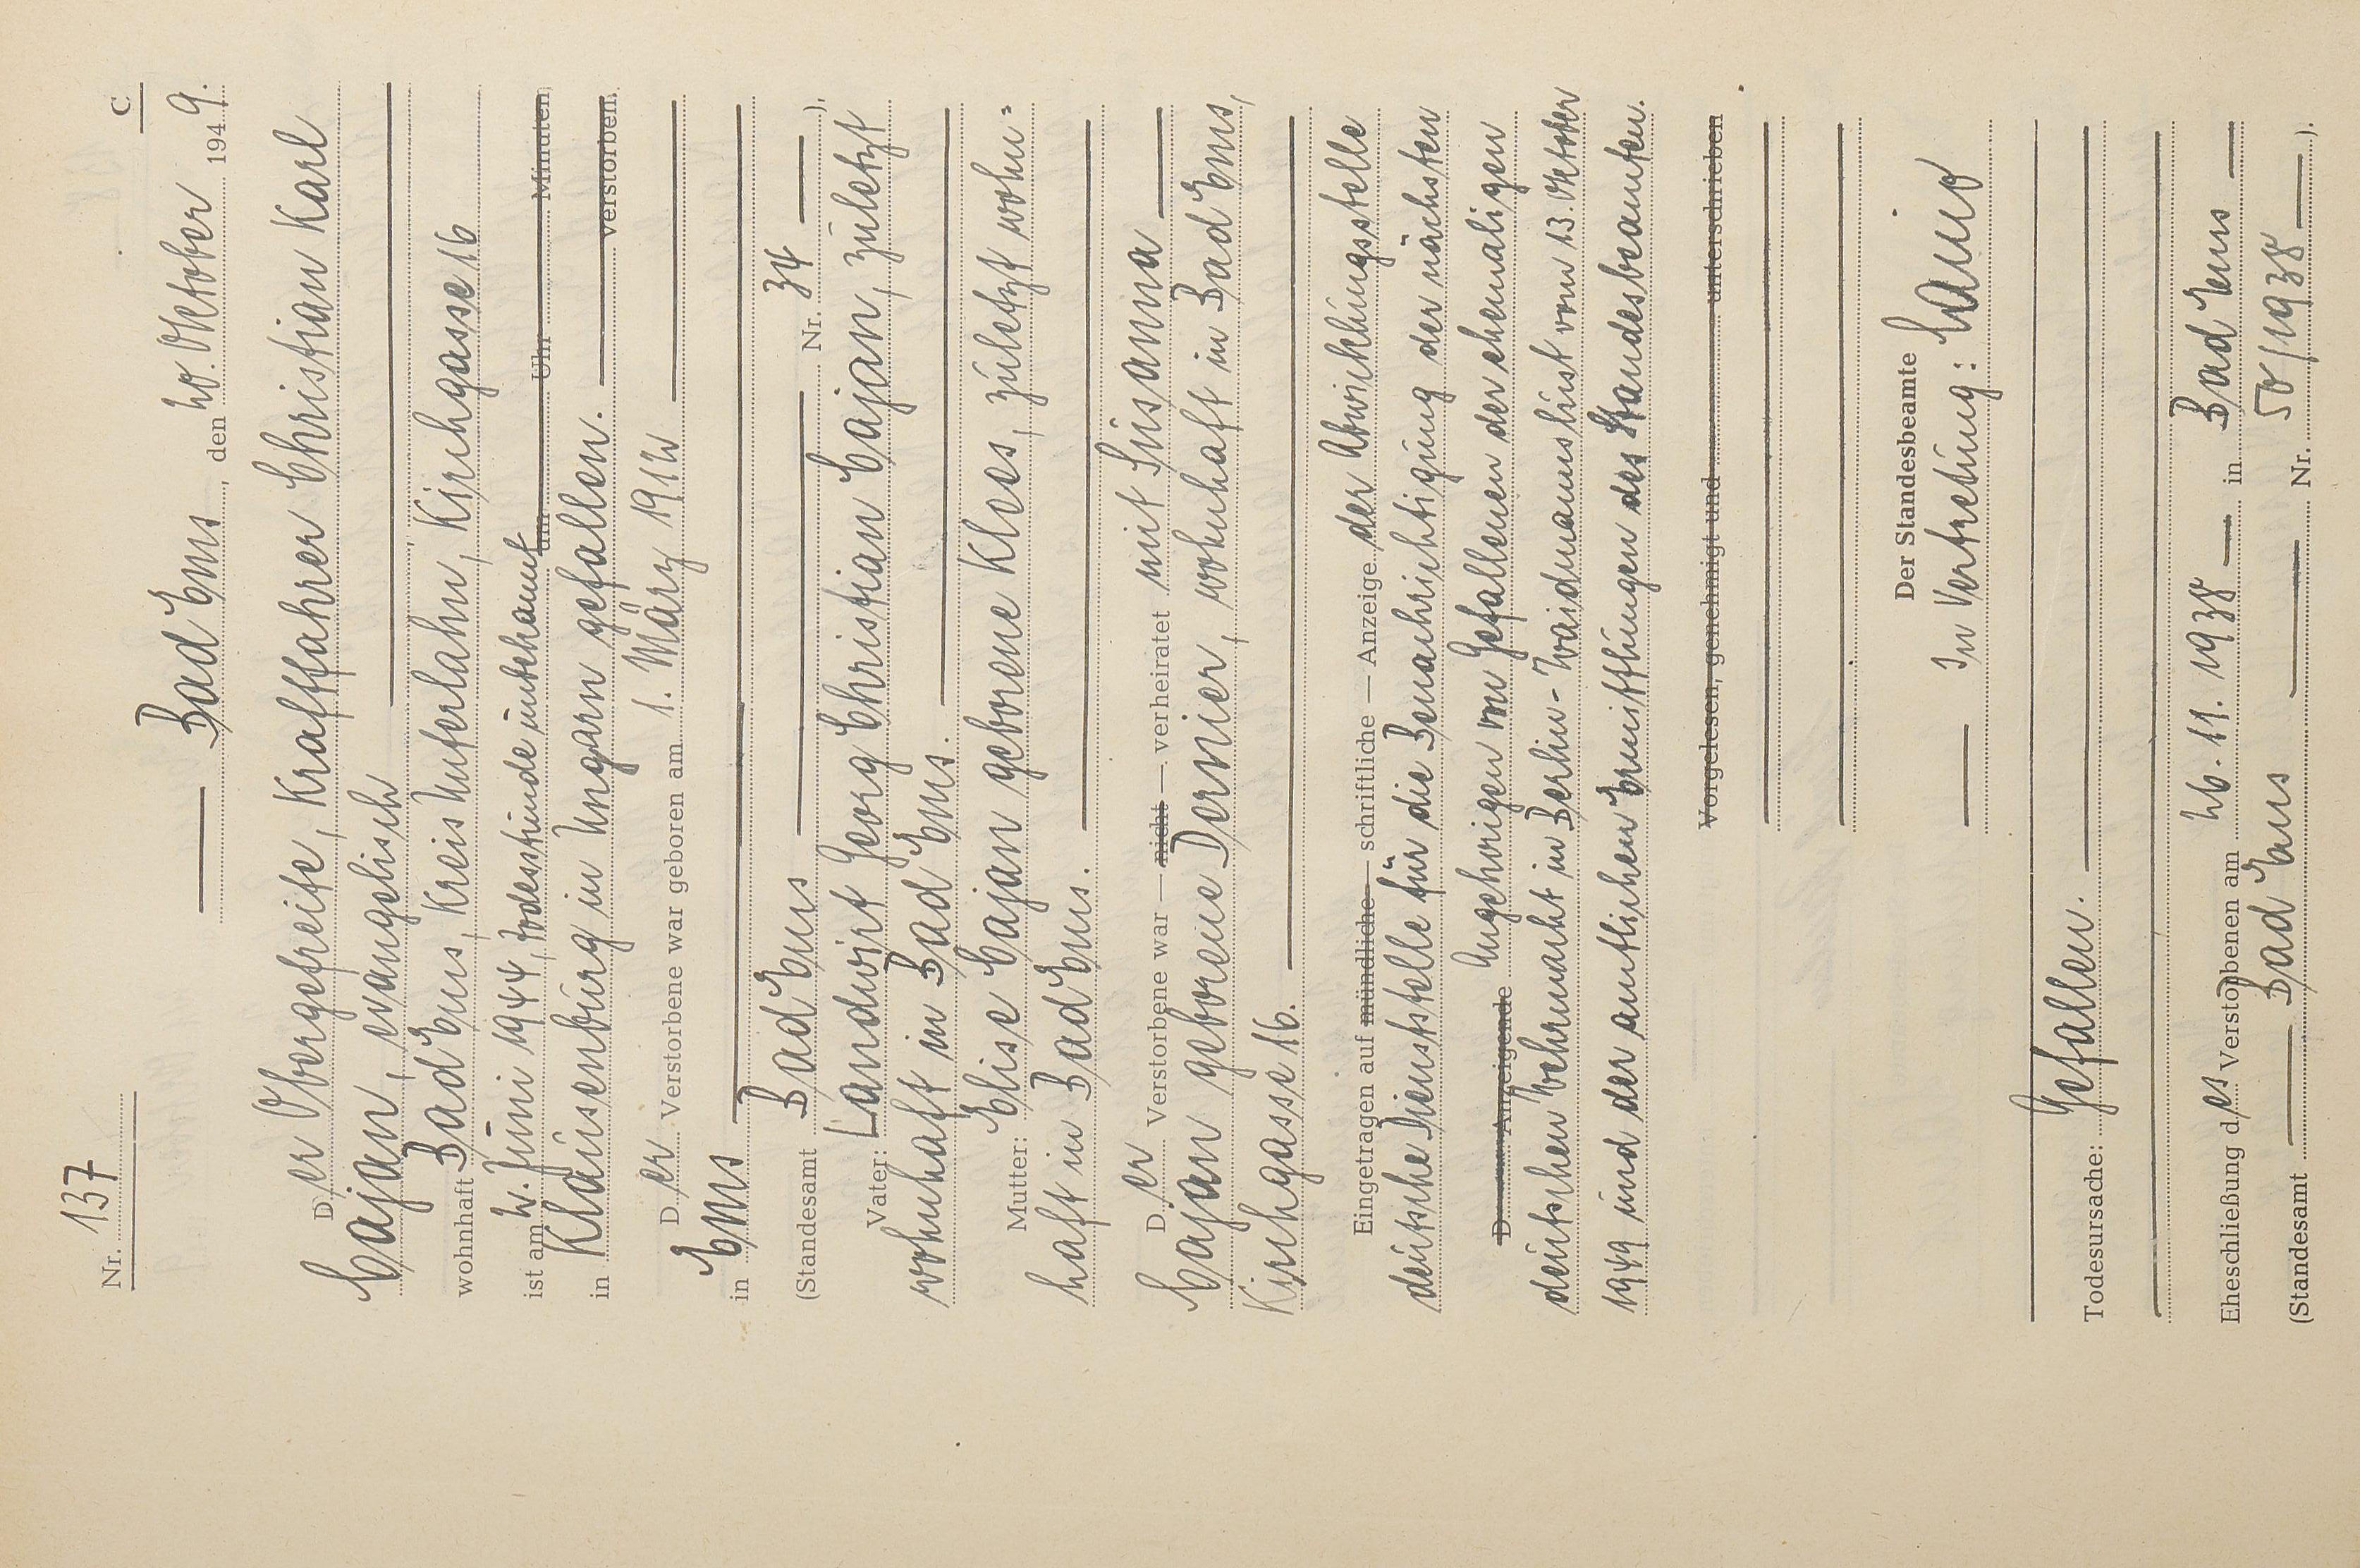 C
Nr. 137
Bad Ems, den 20. Oktober 1949.
Der Obergefreite, Kraftfahrer Christian Karl
Cajan, evangelisch
wohnhaft Bad Ems, Kreis Unterlahn, Kirchgasse 16
ist am 2. Juni 1944, Todesstunde unbekannt um Uhr Minuten
in Klausenburg in Ungarn gefallen. verstorben.
Der Verstorbene war geboren am 1. März 1912
in Ems
(Standesamt Bad Ems Nr. 34 ).
Vater: Landwirt Georg Christian Cajan, zuletzt
wohnhaft in Bad Ems.
Mutter: Elise Cajan geborene Kloes, zuletzt wohn=
haft in Bad Ems.
Der Verstorbene war — nicht — verheiratet mit Susanna
Cajan geborene Dernier, wohnhaft in Bad Ems,
Kirchgasse 16.
Eingetragen auf mündliche — schriftliche — Anzeige der Abwicklungsstelle
deutsche Dienststelle für die Benachrichtigung der nächsten
D Anzeigende Angehörigen von Gefallenen der ehemaligen
deutschen Wehrmacht in Berlin-Waidmannslust vom 13. Oktober
1949 und der amtlichen Ermittlungen des Standesbeamten.
Vorgelesen, genehmigt und unterschrieben
Der Standesbeamte
In Vertretung:
Todesursache: Gefallen.
Eheschließung des Verstorbenen am 26. 11. 1938 in Bad Ems
(Standesamt Bad Ems Nr. 50/1938 ).